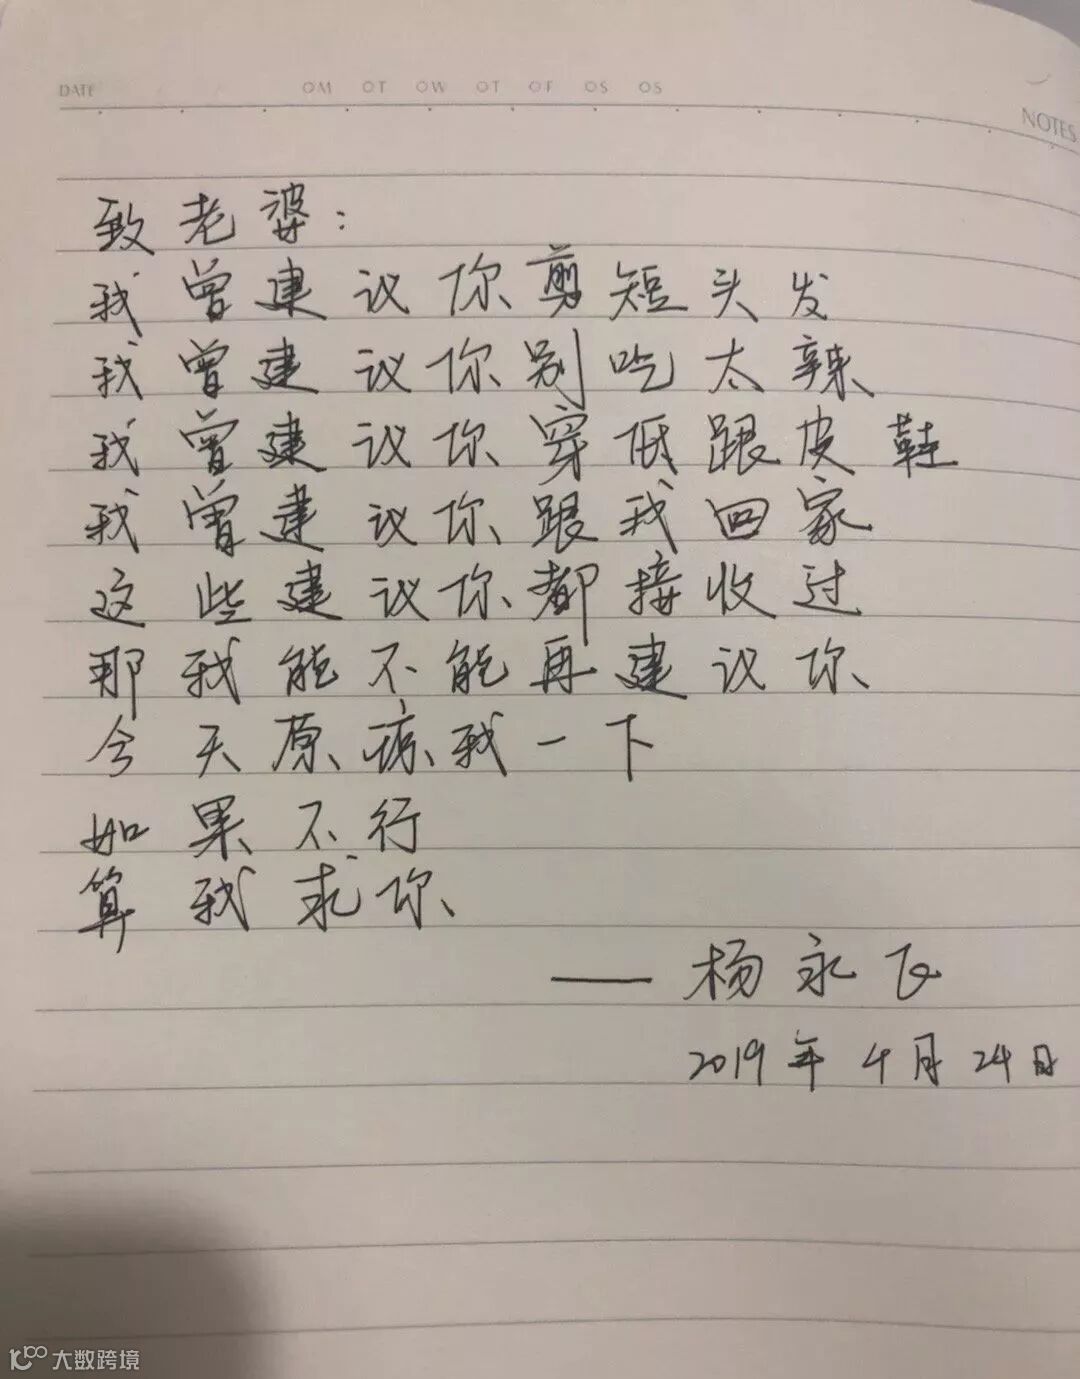 DATE OM OT OW OT OF OS OS
NOTES
致老婆：
我曾建议你剪短头发
我曾建议你别吃太辣
我曾建议你穿低跟皮鞋
我曾建议你跟我回家
这些建议你都接收过
那我能不能再建议你
今天原谅我一下
如果不行
算我求你
——杨永飞
2019年4月24日
大数跨境